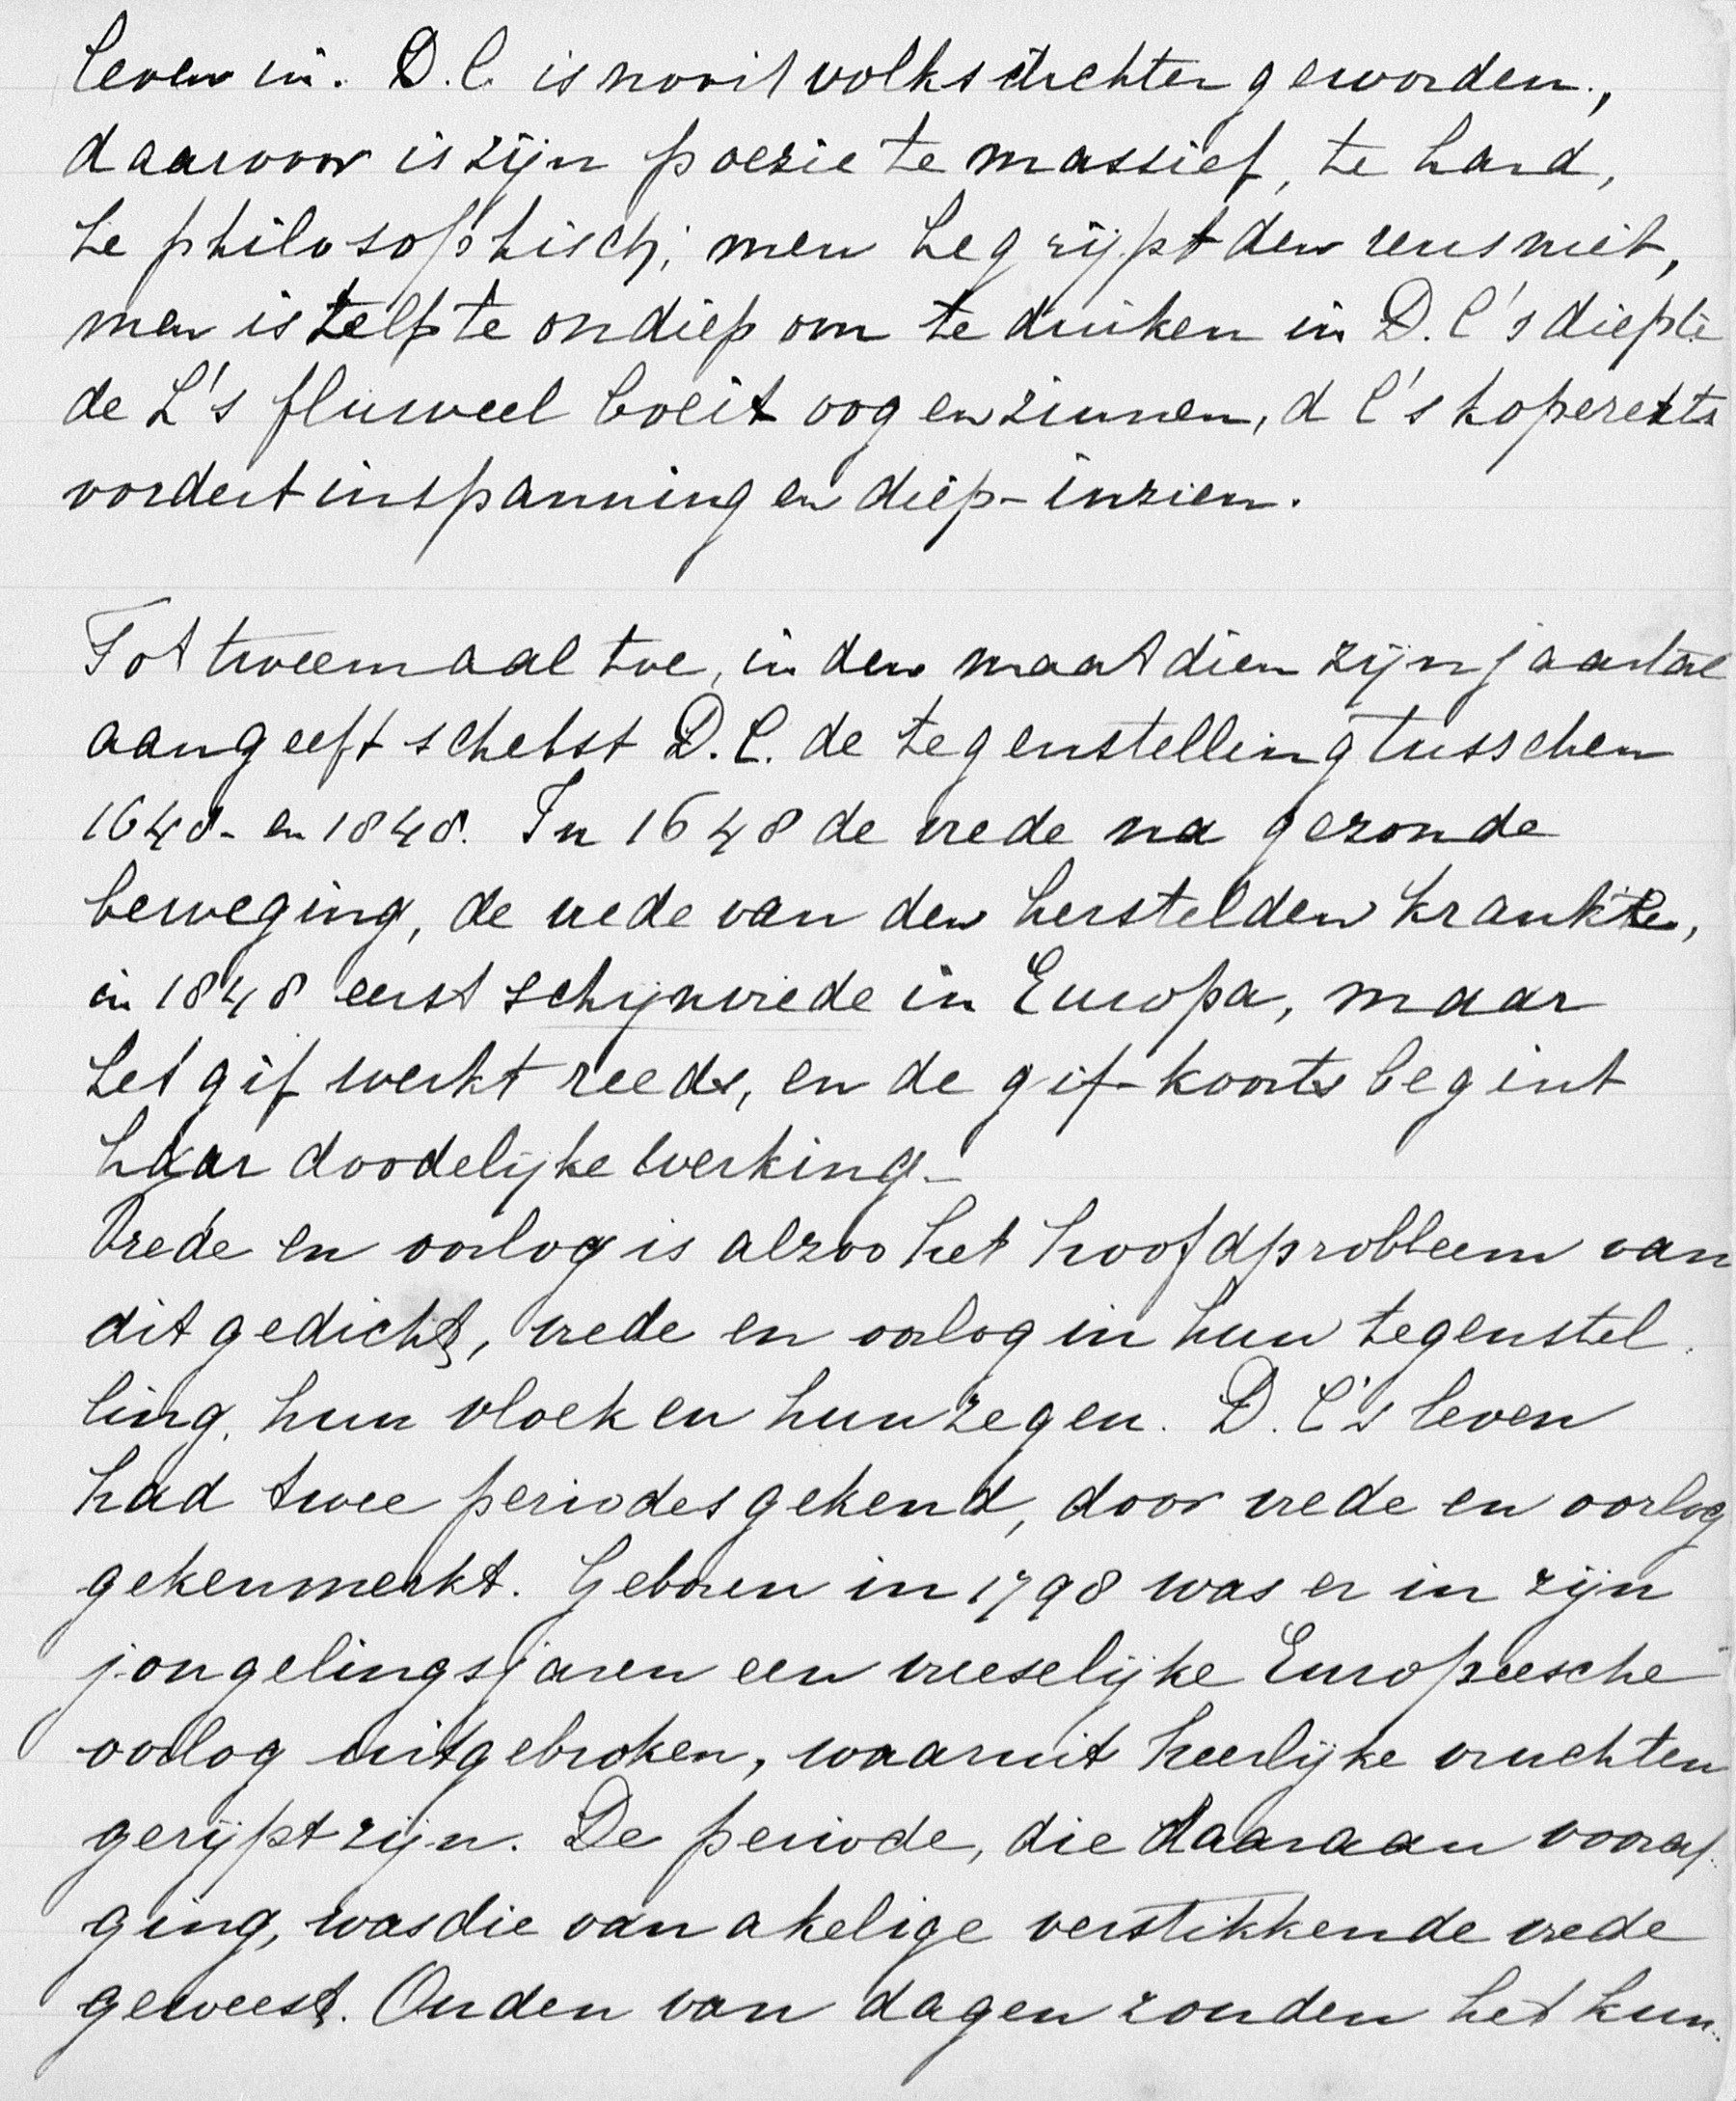 leven in. D.C. is nooit volksdichter geworden.,
daarvoor is zijn poezie te massief, te hard,
te philosophisch; men begrijpt den reus niet,
men is zelf te ondiep om te duiken in D.C's diepte
de L's fluweel boeit oog en zinnen, d C's koperets
vordert inspanning en diep-inzien.

Tot tweemaal toe, in den maat dien zijn jaartal
aangeeft schetst D.C. de tegenstelling tusschen
1648- en 1848. In 1648 de vrede na gezonde
beweging, de vrede van den herstelden kranke,
in 1848 eerst schijnvrede in Europa, maar
het gif werkt reeds, en de gif-koorts begint
haar doodelijke werking-
Vrede en oorlog is alzoo het hoofdprobleem van
dit gedicht, vrede en oorlog in hun tegenstel
ling, hun vloek en hun zegen. D.C's leven
had twee periodes gekend, door vrede en oorlog
gekenmerkt. Geboren in 1798 was er in zijn
jongelingsjaren een vreeselijke Europeesche
oorlog uitgebroken, waaruit heerlijke vruchten
gerijpt zijn. De periode, die daaraan vooraf-
ging, was die van akelige verstikkende vrede
geweest. Ouden van dagen zouden het kun-